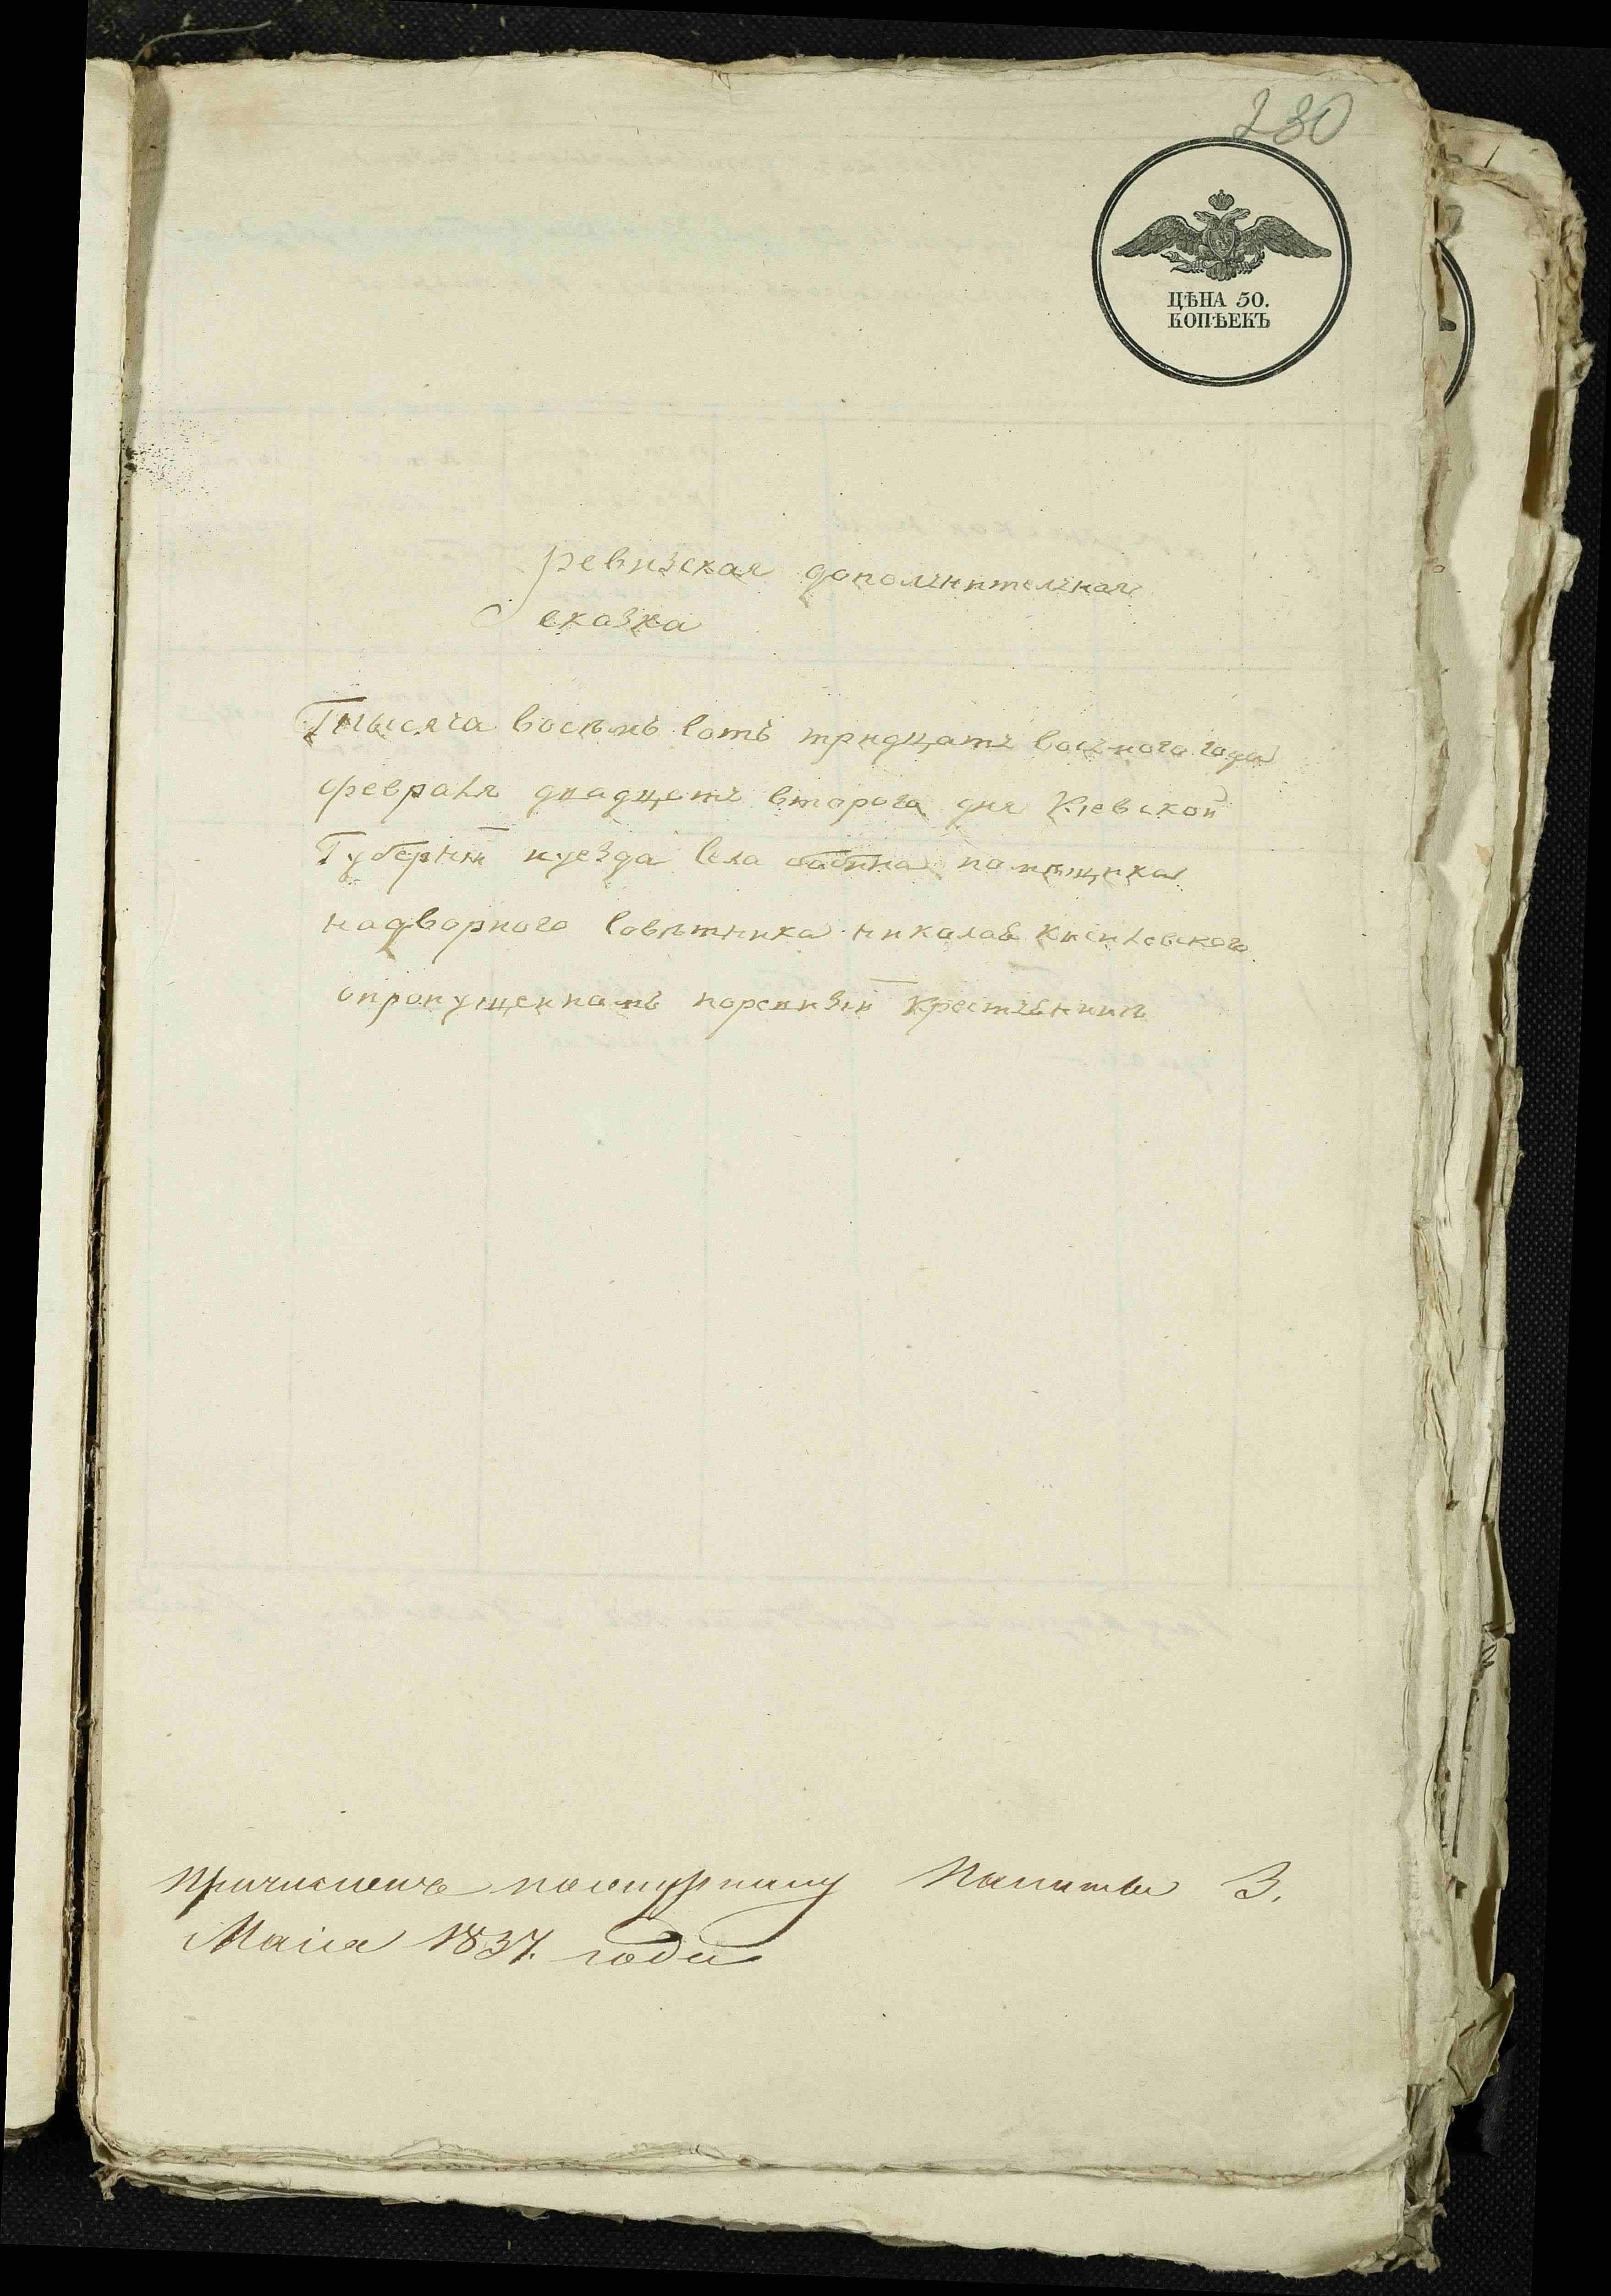 230
ЦѢНА 50.
КОПѢЕКЪ
ревизская дополнителная
сказка
Тысяча восѣмь сотъ тридцать восмого года
февраля двадцать второго дня Кіевской
Губерніи иуезда села помѣщика
надворного совѣтника николая
опропущенномъ поревизіи крестьянинѣ
Причисленъ
Маія 1837. года